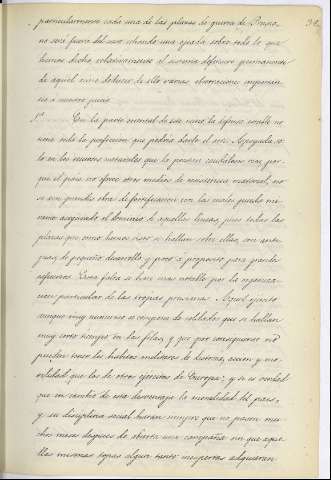 particularmente cada una de las plazas de guerra de Prusia,
no será fuera del caso echando una ojeada sobre todo lo que
hemos dicho relativamente al sistema defensivo permanente
de aquel reino deducir de ello varias observaciones importan-
tes á nuestro juicio.
1ª Con la parte oriental de este reino la defensa
tiene toda la perfeccion que podria darle el arte. Apoyada so-
lo en los recursos naturales que le prestan caudalosos rios, por-
que el pais no ofrece otros medios de resistencia material, no
se ven grandes obras de fortificacion con las cuales quede me-
nos asegurado el dominio de aquellas lineas, pues todas las
plazas que como hemos visto se hallan sobre ellas, son anti-
guas, de pequeño desarrollo y poco á proposito para grandes
esfuerzos. Esta falta se hace mas notable por la organiza-
cion particular de las tropas prusianas. Aquel ejército
aunque muy numeroso se compone de soldados que se hallan
muy corto tiempo en las filas, y que por consiguiente no
pueden tener los habitos militares de destreza, accion y mo-
vilidad que los de otros ejércitos de Europa; y si es verdad
que en cambio de esta desventaja la moralidad del pais,
y su disciplina social haran siempre que no pasen mu-
chos meses despues de abierta una campaña sin que aque-
llas mismas tropas algun tanto inespertas adquieran